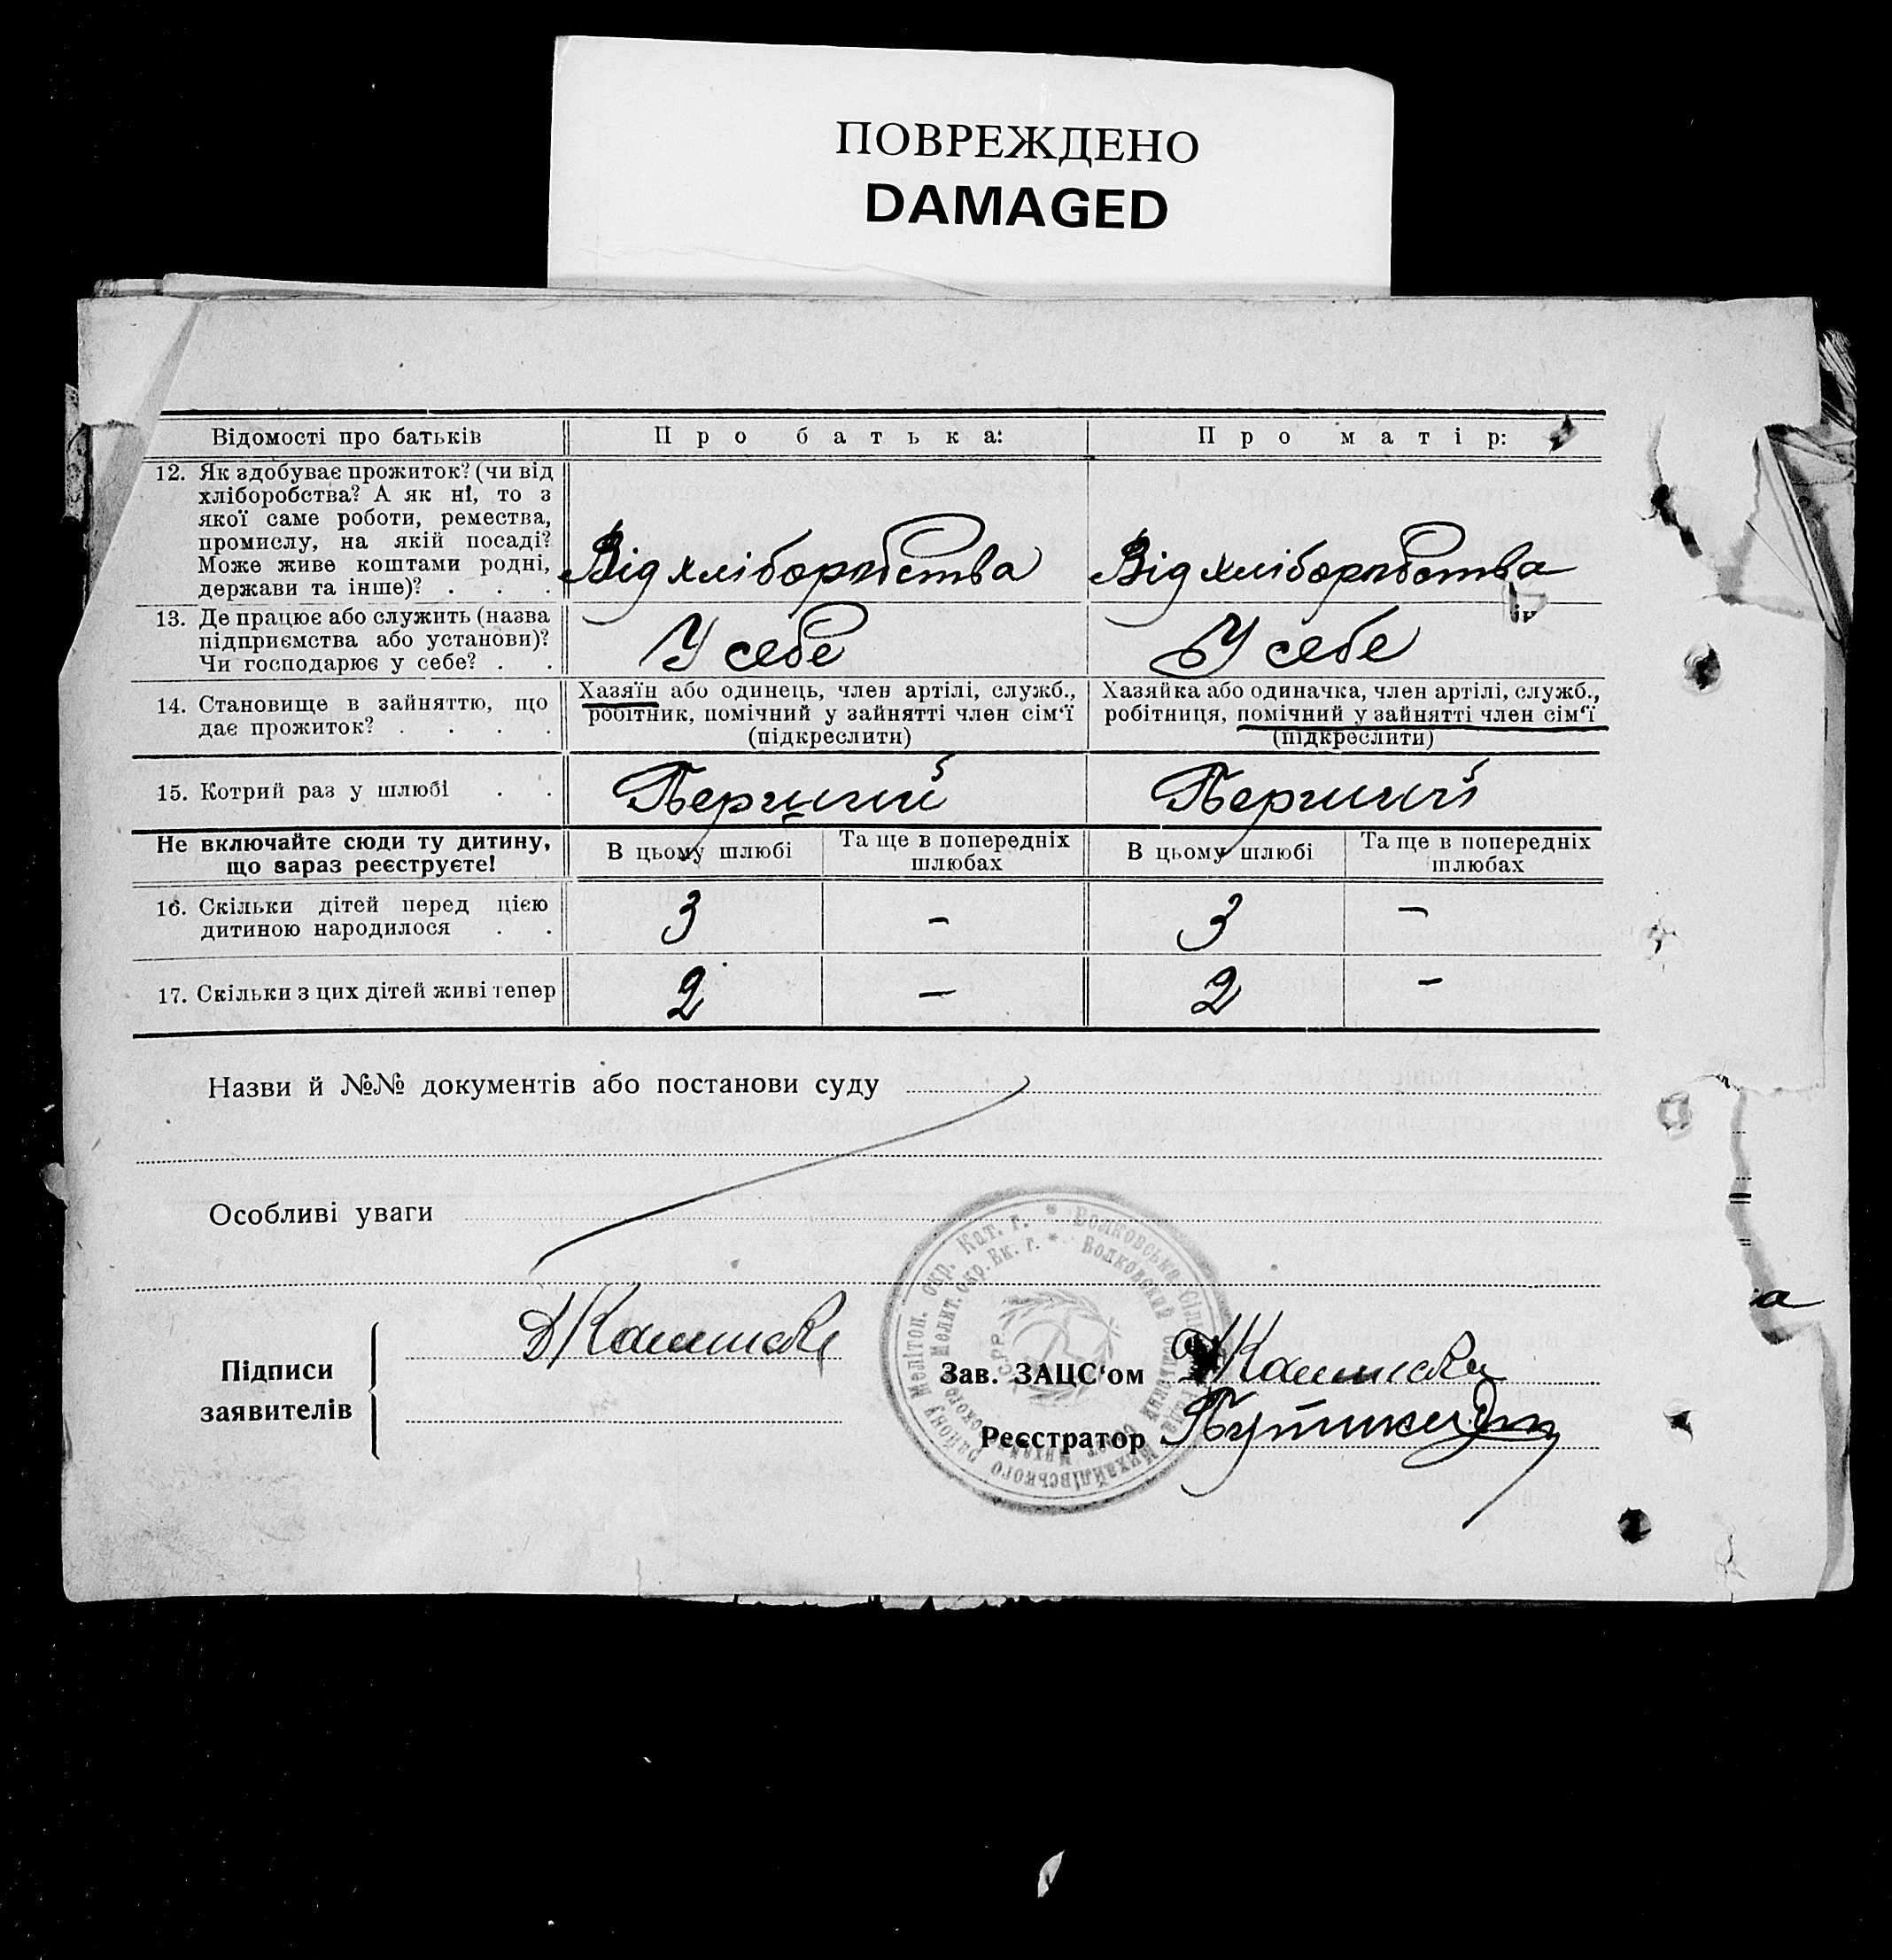 ПОВРЕЖДЕНО
DAMAGED
Відомості про батьків
Про батька:
Про матір:
12. Як здобуває прожиток? (чи від
хліборобства? А як ні, то з
якої саме роботи, ремества,
промислу, на якій посаді?
Може живе коштами родні,
держави та інше)? . . .
Від хліборобства
Від хліборобства
13. Де працює або служить (назва
підприємства або установи)?
Чи господарює у себе? . .
У себе
У себе
14. Становище в зайняттю, що
дає прожиток? . . . .
Хазяїн або одинець, член артілі, служб.,
робітник, помічний у зайнятті член сім‘ї
(підкреслити)
Хазяйка або одиначка, член артілі, служб.,
робітниця, помічний у зайнятті член сім‘ї
(підкреслити)
15. Котрий раз у шлюбі . .
Перший
Перший
Не включайте сюди ту дитину,
що зараз реєструєте!
В цьому шлюбі
Та ще в попередніх
шлюбах
В цьому шлюбі
Та ще в попередніх
шлюбах
16. Скільки дітей перед цією
дитиною народилося . .
3
–
3
–
17. Скільки з цих дітей живі тепер
2
–
2
–
Назви й №№ документів або постанови суду
Особливі уваги
Підписи
заявителів
Зав. ЗАЦС‘ом
Реєстратор
Волковська Сільрада Михайлівського району Мелітоп. окр. Кат. г. *